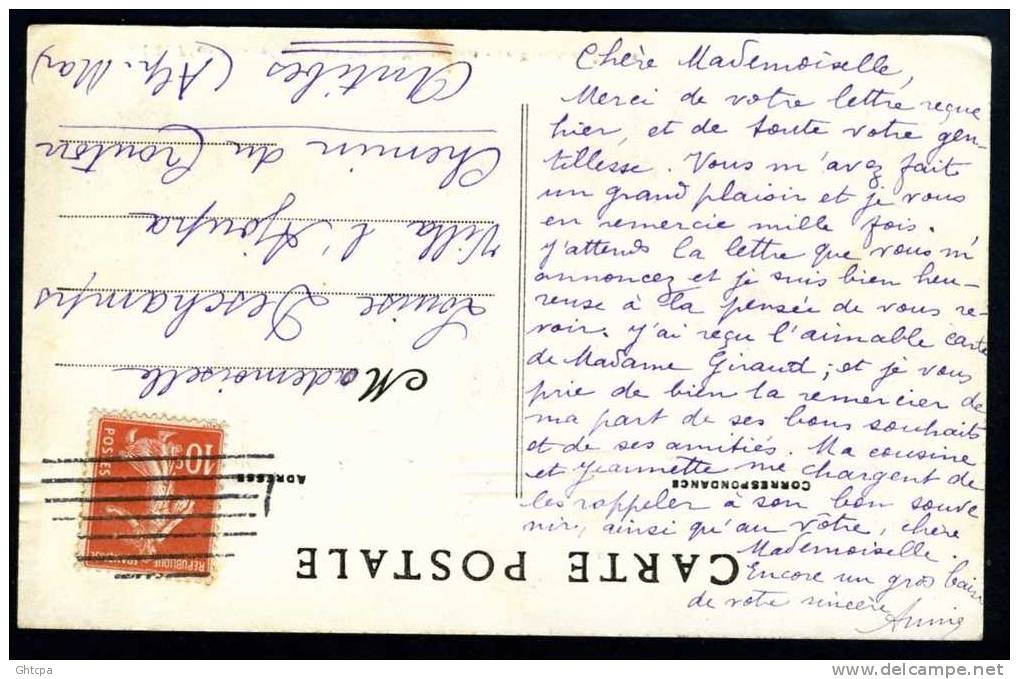 Chère Mademoiselle,
Merci de votre lettre reçue
hier, et de toute votre gen-
tillesse. Vous m'avez fait
un grand plaisir et je vous
en remercie mille fois.
J'attends la lettre que vous m'
annoncez et je suis bien heu-
reuse à la pensée de vous re-
voir. J'ai reçu l'aimable carte
de Madame Giraud; et je vous
prie de bien la remercier de
ma part de ses bons souhaits
et de ses amitiés. Ma cousine
et Jeannette me chargent de
les rappeler à son bon souve
nir, ainsi qu'au vôtre, chère
Mademoiselle.
Encore un gros baiser
de votre sincère
CARTE POSTALE
CORRESPONDANCE
ADRESSE
Mademoiselle
Louise Deschamps
Villa l'Ajoupa
Chemin du Crouton
Antibes (Alp. Mar)
10c
POSTES
REPUBLIQUE FRANÇAISE
Ghtcpa
www.delcampe.net